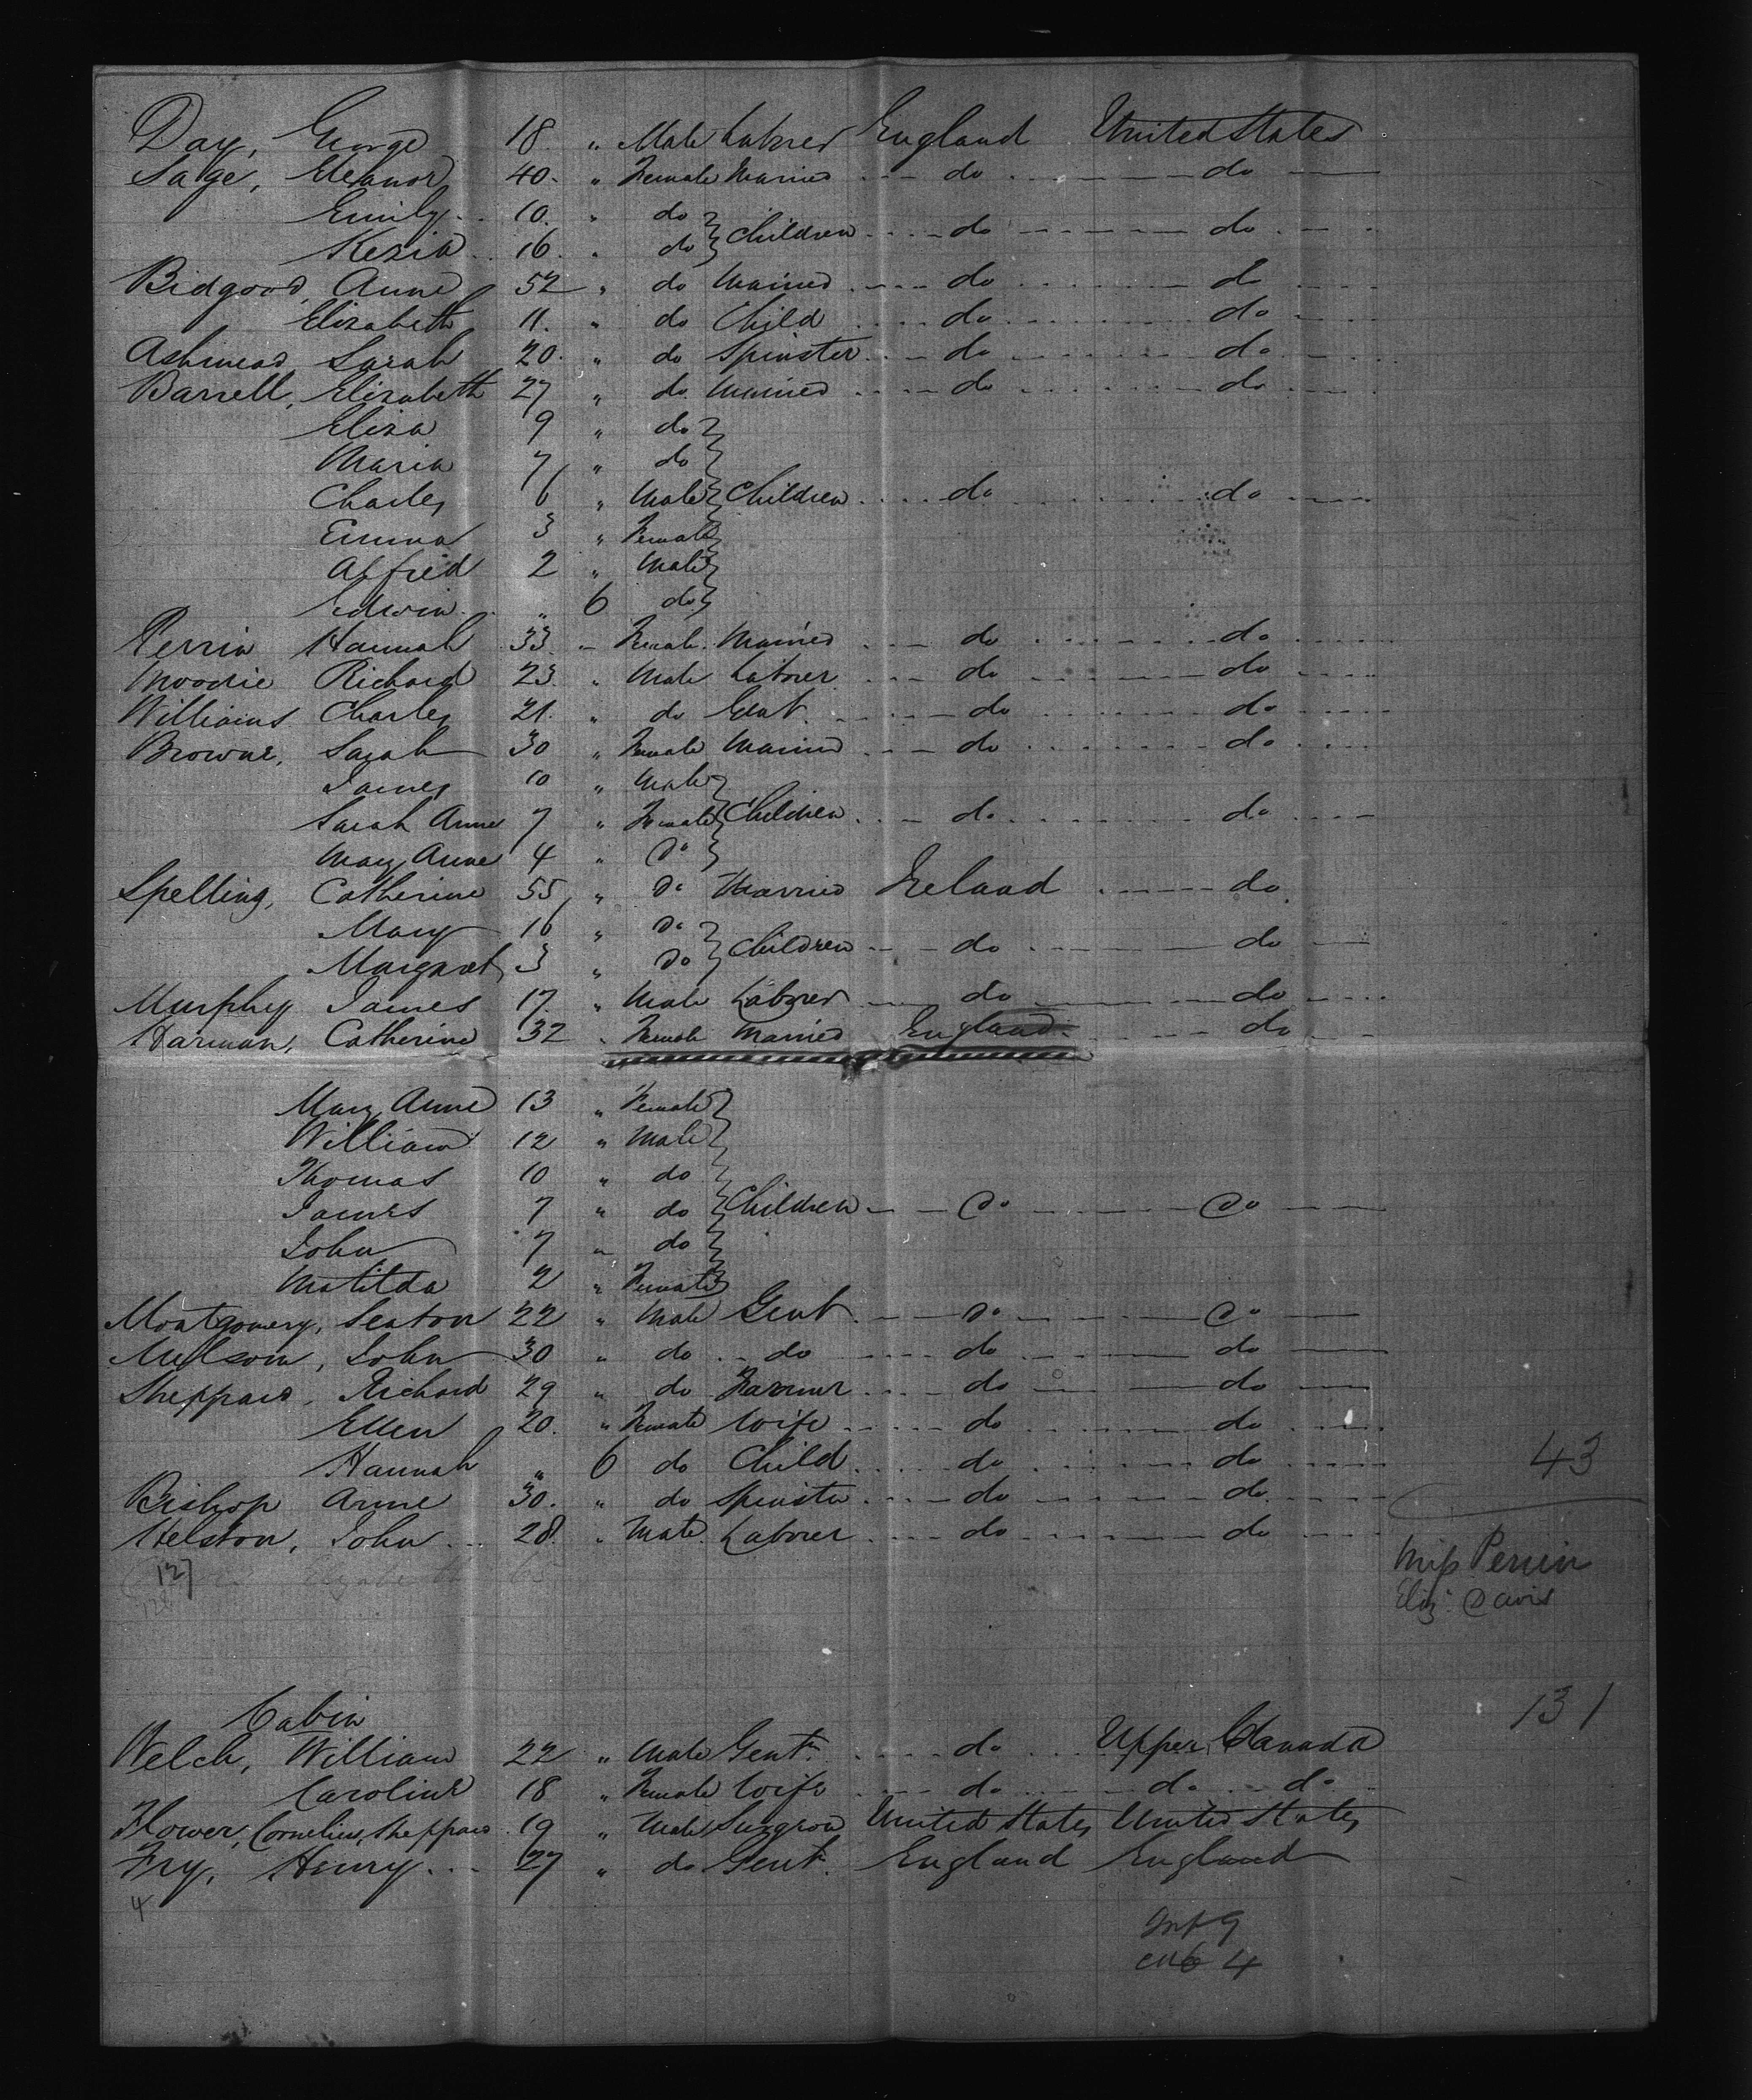 Day, George 18 " Male Laborer England United States
Sage, Eleanor 40 " Female Married do do
Emily 10 " do
Kezia 16 " do } Children do do
Bidgood, Anne 52 " do Married do do
Elizabeth 11 " do Child do do
Ashmead Sarah 20 " do Spinster do do
Barrell, Elizabeth 27 " do Married do do
Eliza 9 " do
Maria 7 " do
Charles 6 " Male } Children do do
Emma 3 " Female
Alfred 2 " Male
Edwin " 6 do
Perrin Hannah 33 " Female Married do do
Moodie Richard 23 " Male Laborer do do
Williams Charles 21 " do Gent do do
Browne, Sarah 30 " Female Married do do
James 10 " Male
Sarah Anne 7 " Female } Children do do
Mary Anne 4 " Do
Spelling, Catherine 55 " Do Married Ireland do
Mary 16 " Do
Margaret 3 " Do } Children do do
Murphy James 17 " Male Laborer do do
Harman, Catherine 32 " Female Married England do
Mary Anne 13 " Female
William 12 " Male
Thomas 10 " do
James 7 " do } Children Do Do
John 7 " do
Matilda 2 " Female
Montgomery, Seaton 22 " Male Gent Do Do
John 30 " do do do do
Sheppard, Richard 29 " do Farmer do do
Ellen 20 " Female Wife do do
Hannah " 6 do Child do do
43
Bishop Anne 30 " do Spinster do do
Helston, John 28 " Male Laborer do do
127
Miss Perrin
Eliz. Davis
131
Cabin
Welch, William 22 " Male Gent. do Upper Canada
Caroline 18 " Female Wife do do do
Flower, Cornelius Sheppard 19 " Male Surgeon United States United States
Fry, Henry 27 " do Gent. England England
4
Inf 9
4